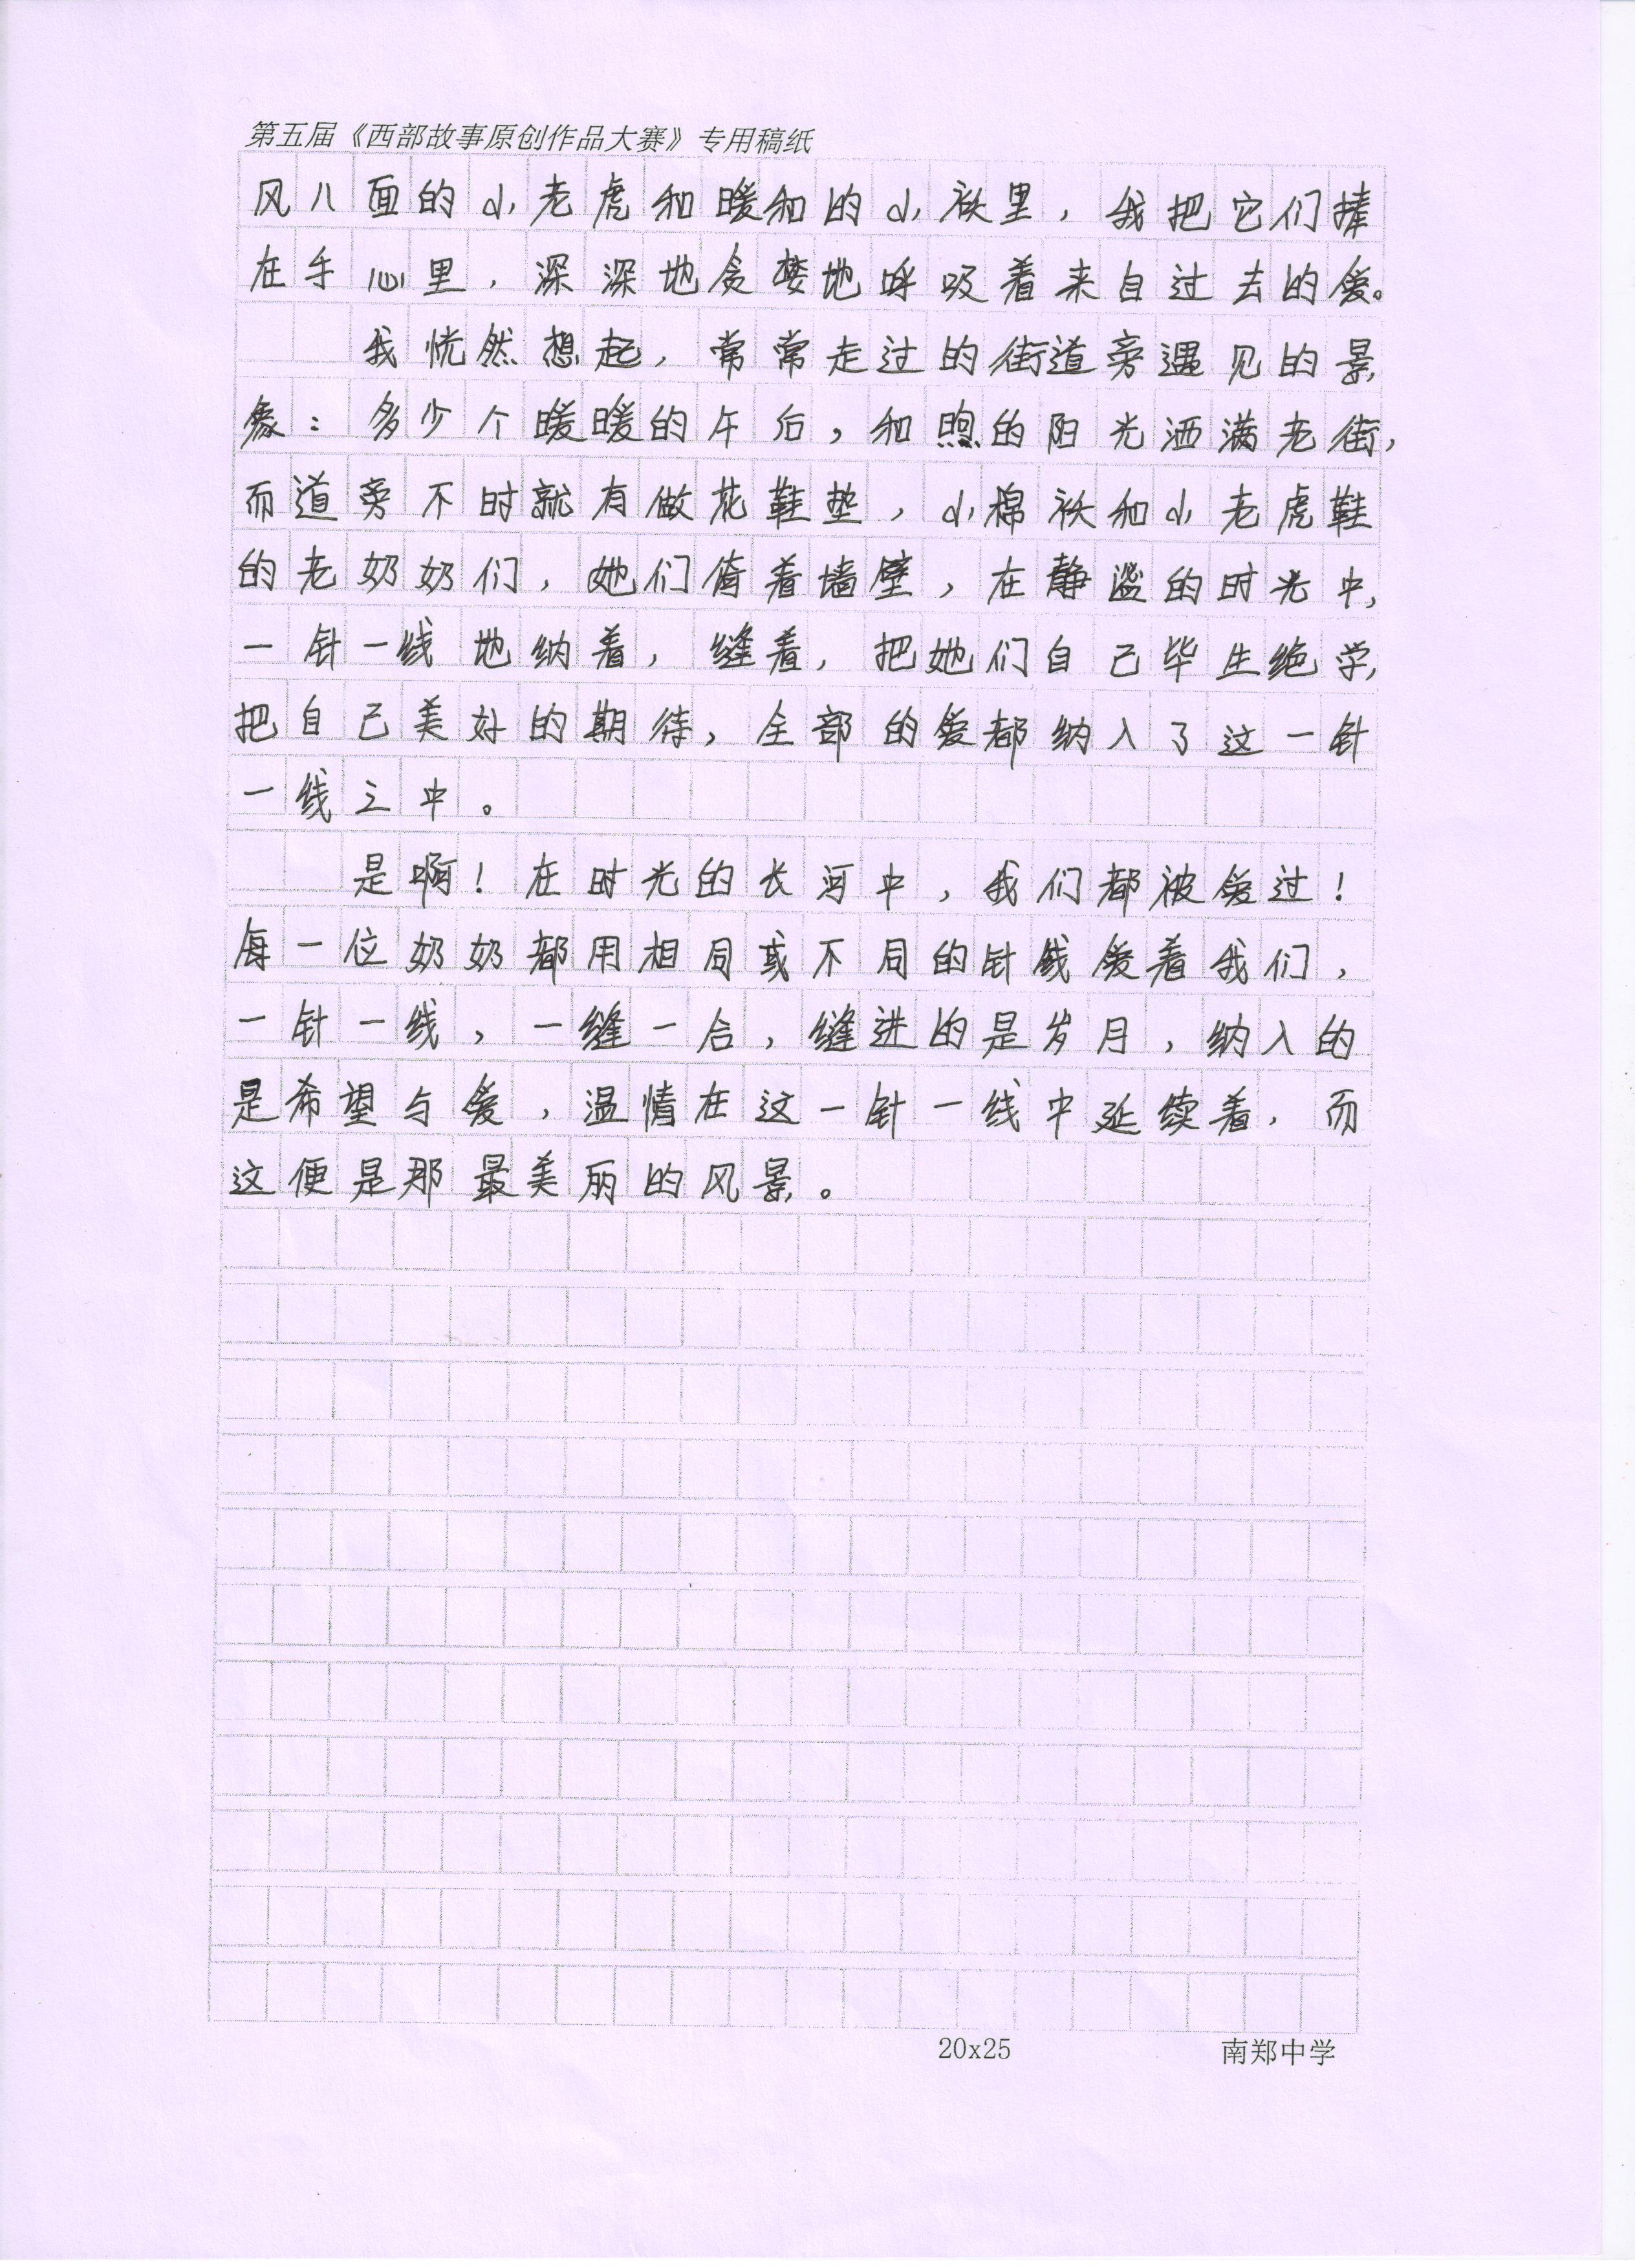 第五届《西部故事原创作品大赛》专用稿纸
风八面的小老虎和暖和的小袄里，我把它们捧
在手心里，深深地贪婪地呼吸着来自过去的爱。
我恍然想起，常常走过的街道旁遇见的景
象：多少个暖暖的午后，和煦的阳光洒满老街，
而道旁不时就有做花鞋垫，小棉袄和小老虎鞋
的老奶奶们，她们倚着墙壁，在静谧的时光中，
一针一线地纳着，缝着，把她们自己毕生绝学，
把自己美好的期待，全部的爱都纳入了这一针
一线之中。
是啊！在时光的长河中，我们都被爱过！
每一位奶奶都用相同或不同的针线爱着我们，
一针一线，一缝一合，缝进的是岁月，纳入的
是希望与爱，温情在这一针一线中延续着，而
这便是那最美丽的风景。
20x25 南郑中学